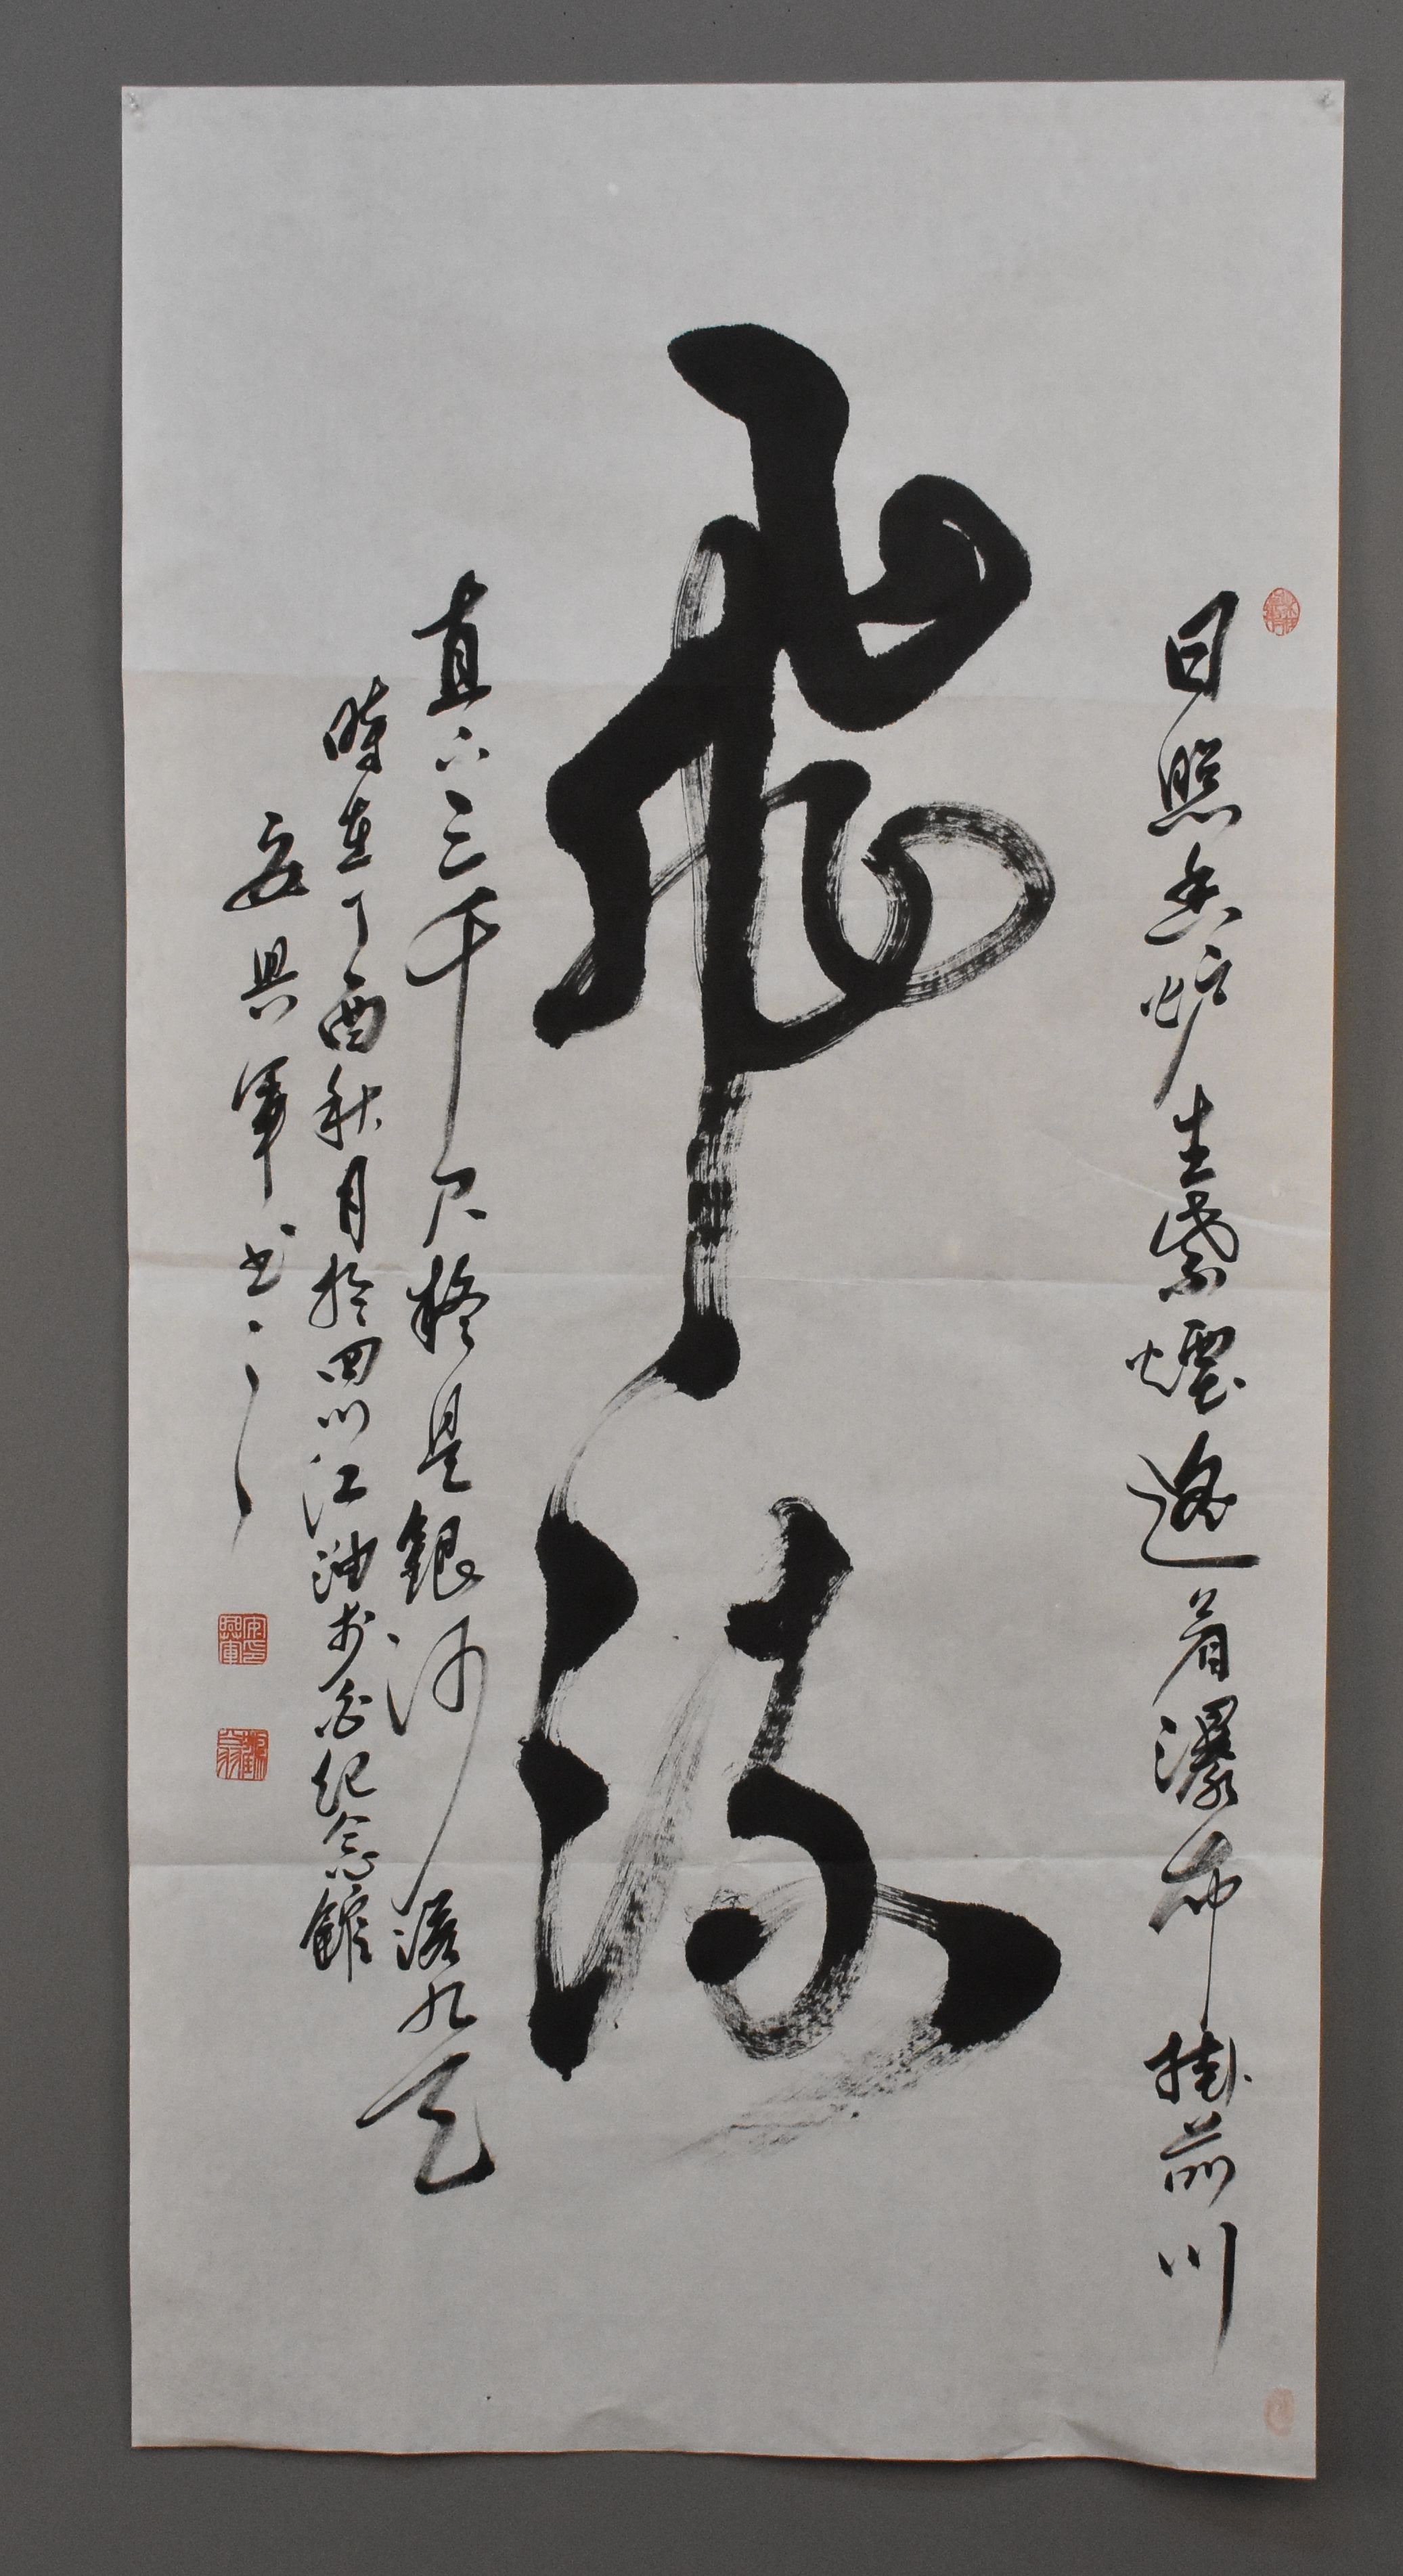 日照香炉生紫煙遥看瀑布掛前川
飛流
直下三千尺疑是銀河落九天
時在丁酉秋月於四川江油李白纪念館
安興軍书
安印興軍